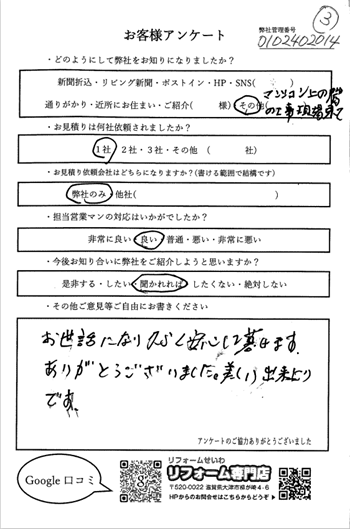 ③
お客様アンケート
弊社管理番号
0102402014
・どのようにして弊社をお知りになりましたか？
新聞折込・リビング新聞・ポストイン・HP・SNS( )
通りがかり・近所にお住まい・ご紹介( 様) その他(
マンション上の階の工事現場を見て
・お見積りは何社依頼されましたか？
1社 2社・3社・その他 ( 社)
・お見積り依頼会社はどちらになりますか？(書ける範囲で結構です)
弊社のみ・他社( )
・担当営業マンの対応はいかがでしたか？
非常に良い・良い・普通・悪い・非常に悪い
・今後お知り合いに弊社をご紹介しようと思いますか？
是非する・したい・聞かれれば・したくない・絶対しない
・その他ご意見等ご自由にお書きください
お世話になり 安心して暮せます。
ありがとうございました。美しい出来上り
です。
アンケートのご協力ありがとうございました
Google 口コミ
リフォームせいわ
リフォーム専門店
〒520-0022 滋賀県大津市柳が崎4-6
HPからのお問合せはこちらからどうぞ